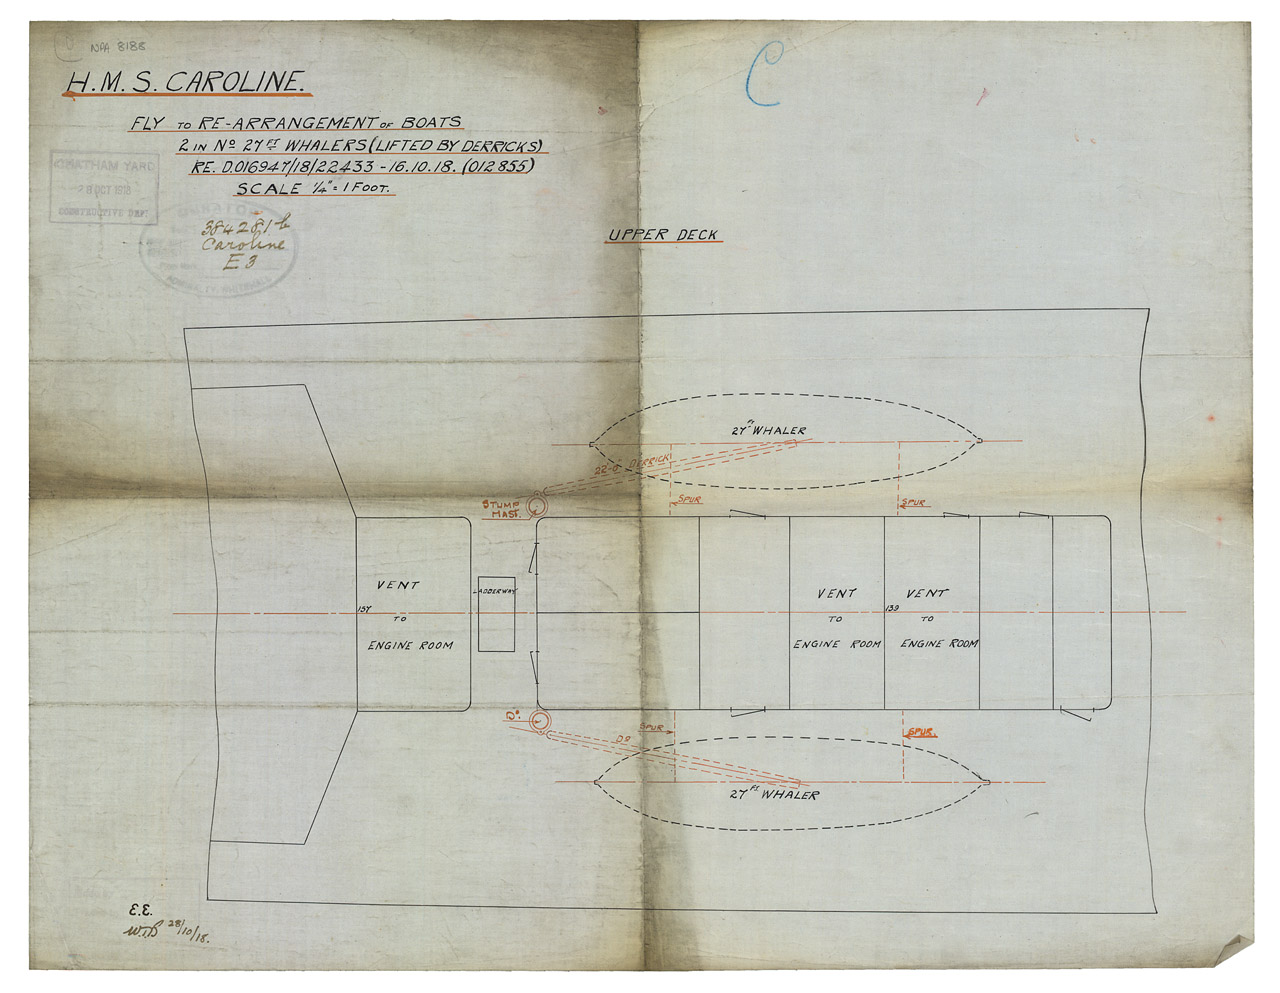 NPA 8188
H.M.S. CAROLINE.
FLY TO RE-ARRANGEMENT OF BOATS
2 IN Nº 27 FT WHALERS (LIFTED BY DERRICKS)
RE. D.016947/18/22433 - 16.10.18. (012855)
SCALE ¼" = 1 FOOT.
CHATHAM YARD
28 OCT 1918
CONSTRUCTIVE DEPT
384281b
Caroline
E 3
ADMIRALTY, WHITEHALL
C
UPPER DECK
27 FT WHALER
22'-0" DERRICK
STUMP
MAST.
SPUR
SPUR
VENT
TO
ENGINE ROOM
157
LADDERWAY
VENT
TO
ENGINE ROOM
139
VENT
TO
ENGINE ROOM
Dº.
Dº
SPUR
SPUR.
27 FT WHALER
E.E.
28/10/18.